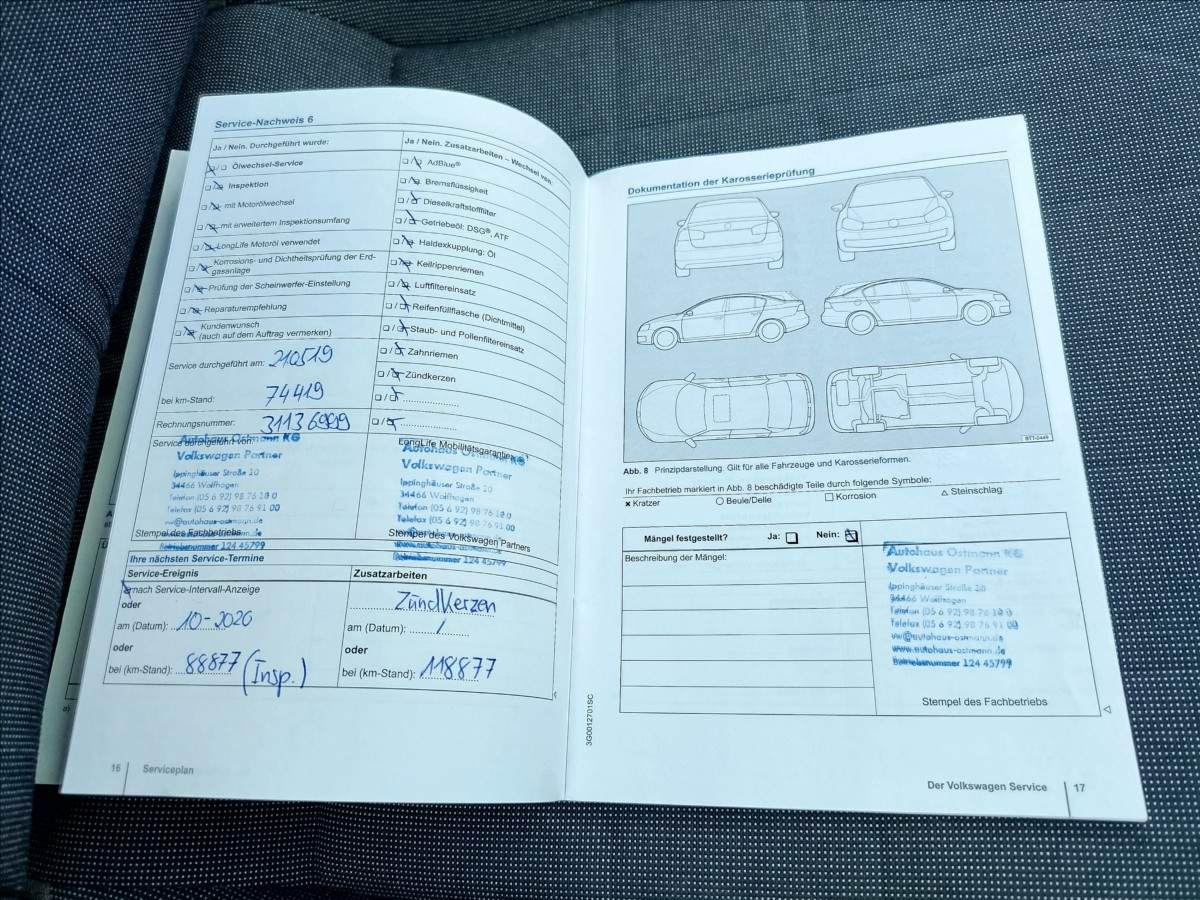 Service-Nachweis 6
Ja / Nein. Durchgeführt wurde:
Ölwechsel-Service
Inspektion
mit Motorölwechsel
mit erweitertem Inspektionsumfang
LongLife Motoröl verwendet
Korrosions- und Dichtheitsprüfung der Erd-
gasanlage
Prüfung der Scheinwerfer-Einstellung
Reparaturempfehlung
Kundenwunsch
(auch auf dem Auftrag vermerken)
Service durchgeführt am: 210519
bei km-Stand: 74419
Rechnungsnummer: 31136999
Service durchgeführt von:
Autohaus Ostmann KG
Volkswagen Partner
Ippinghäuser Straße 20
34466 Wolfhagen
Telefon (05 6 92) 98 76 10 0
Telefax (05 6 92) 98 76 91 00
vw@autohaus-ostmann.de
Stempel des Fachbetriebs
Betriebsnummer 124 45799
Ja / Nein. Zusatzarbeiten – Wechsel von:
AdBlue®
Bremsflüssigkeit
Dieselkraftstofffilter
Getriebeöl: DSG®, ATF
Haldexkupplung: Öl
Keilrippenriemen
Luftfiltereinsatz
Reifenfüllflasche (Dichtmittel)
Staub- und Pollenfiltereinsatz
Zahnriemen
Zündkerzen
LongLife Mobilitätsgarantie
Autohaus Ostmann KG
Volkswagen Partner
Ippinghäuser Straße 20
34466 Wolfhagen
Telefon (05 6 92) 98 76 10 0
Telefax (05 6 92) 98 76 91 00
Stempel des Volkswagen Partners
www.autohaus-ostmann.de
Betriebsnummer 124 45799
Ihre nächsten Service-Termine
Service-Ereignis
nach Service-Intervall-Anzeige
oder
am (Datum): 10-2026
oder
bei (km-Stand): 88877 (Insp.)
Zusatzarbeiten
Zündkerzen
am (Datum): /
oder
bei (km-Stand): 118877
16 Serviceplan
3G0012701SC
Dokumentation der Karosserieprüfung
BTT-0449
Abb. 8 Prinzipdarstellung. Gilt für alle Fahrzeuge und Karosserieformen.
Ihr Fachbetrieb markiert in Abb. 8 beschädigte Teile durch folgende Symbole:
Kratzer Beule/Delle Korrosion Steinschlag
Mängel festgestellt? Ja: Nein:
Beschreibung der Mängel:
Autohaus Ostmann KG
Volkswagen Partner
Ippinghäuser Straße 20
34466 Wolfhagen
Telefon (05 6 92) 98 76 10 0
Telefax (05 6 92) 98 76 91 00
vw@autohaus-ostmann.de
www.autohaus-ostmann.de
Betriebsnummer 124 45799
Stempel des Fachbetriebs
Der Volkswagen Service 17